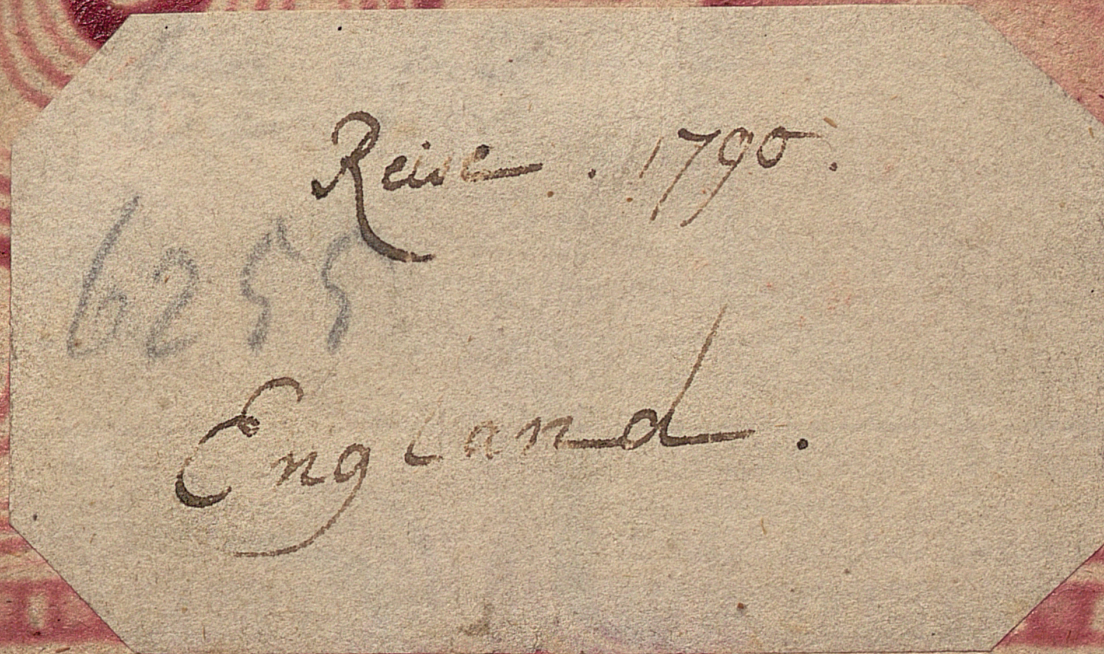 Reise . 1790.
6255
England.